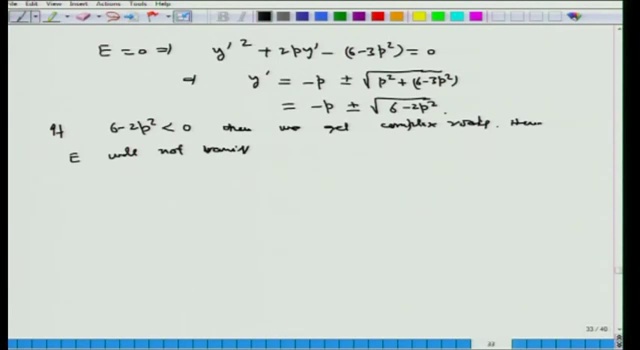 Insert Actions Tools Help
E = 0 ⇒ y'² + 2py' − (6−3p²) = 0
⇒ y' = −p ± √(p² + (6−3p²))
= −p ± √(6−2p²).
If 6−2p² < 0 then we get complex roots. Hence
E will not vanish
33 / 40
33